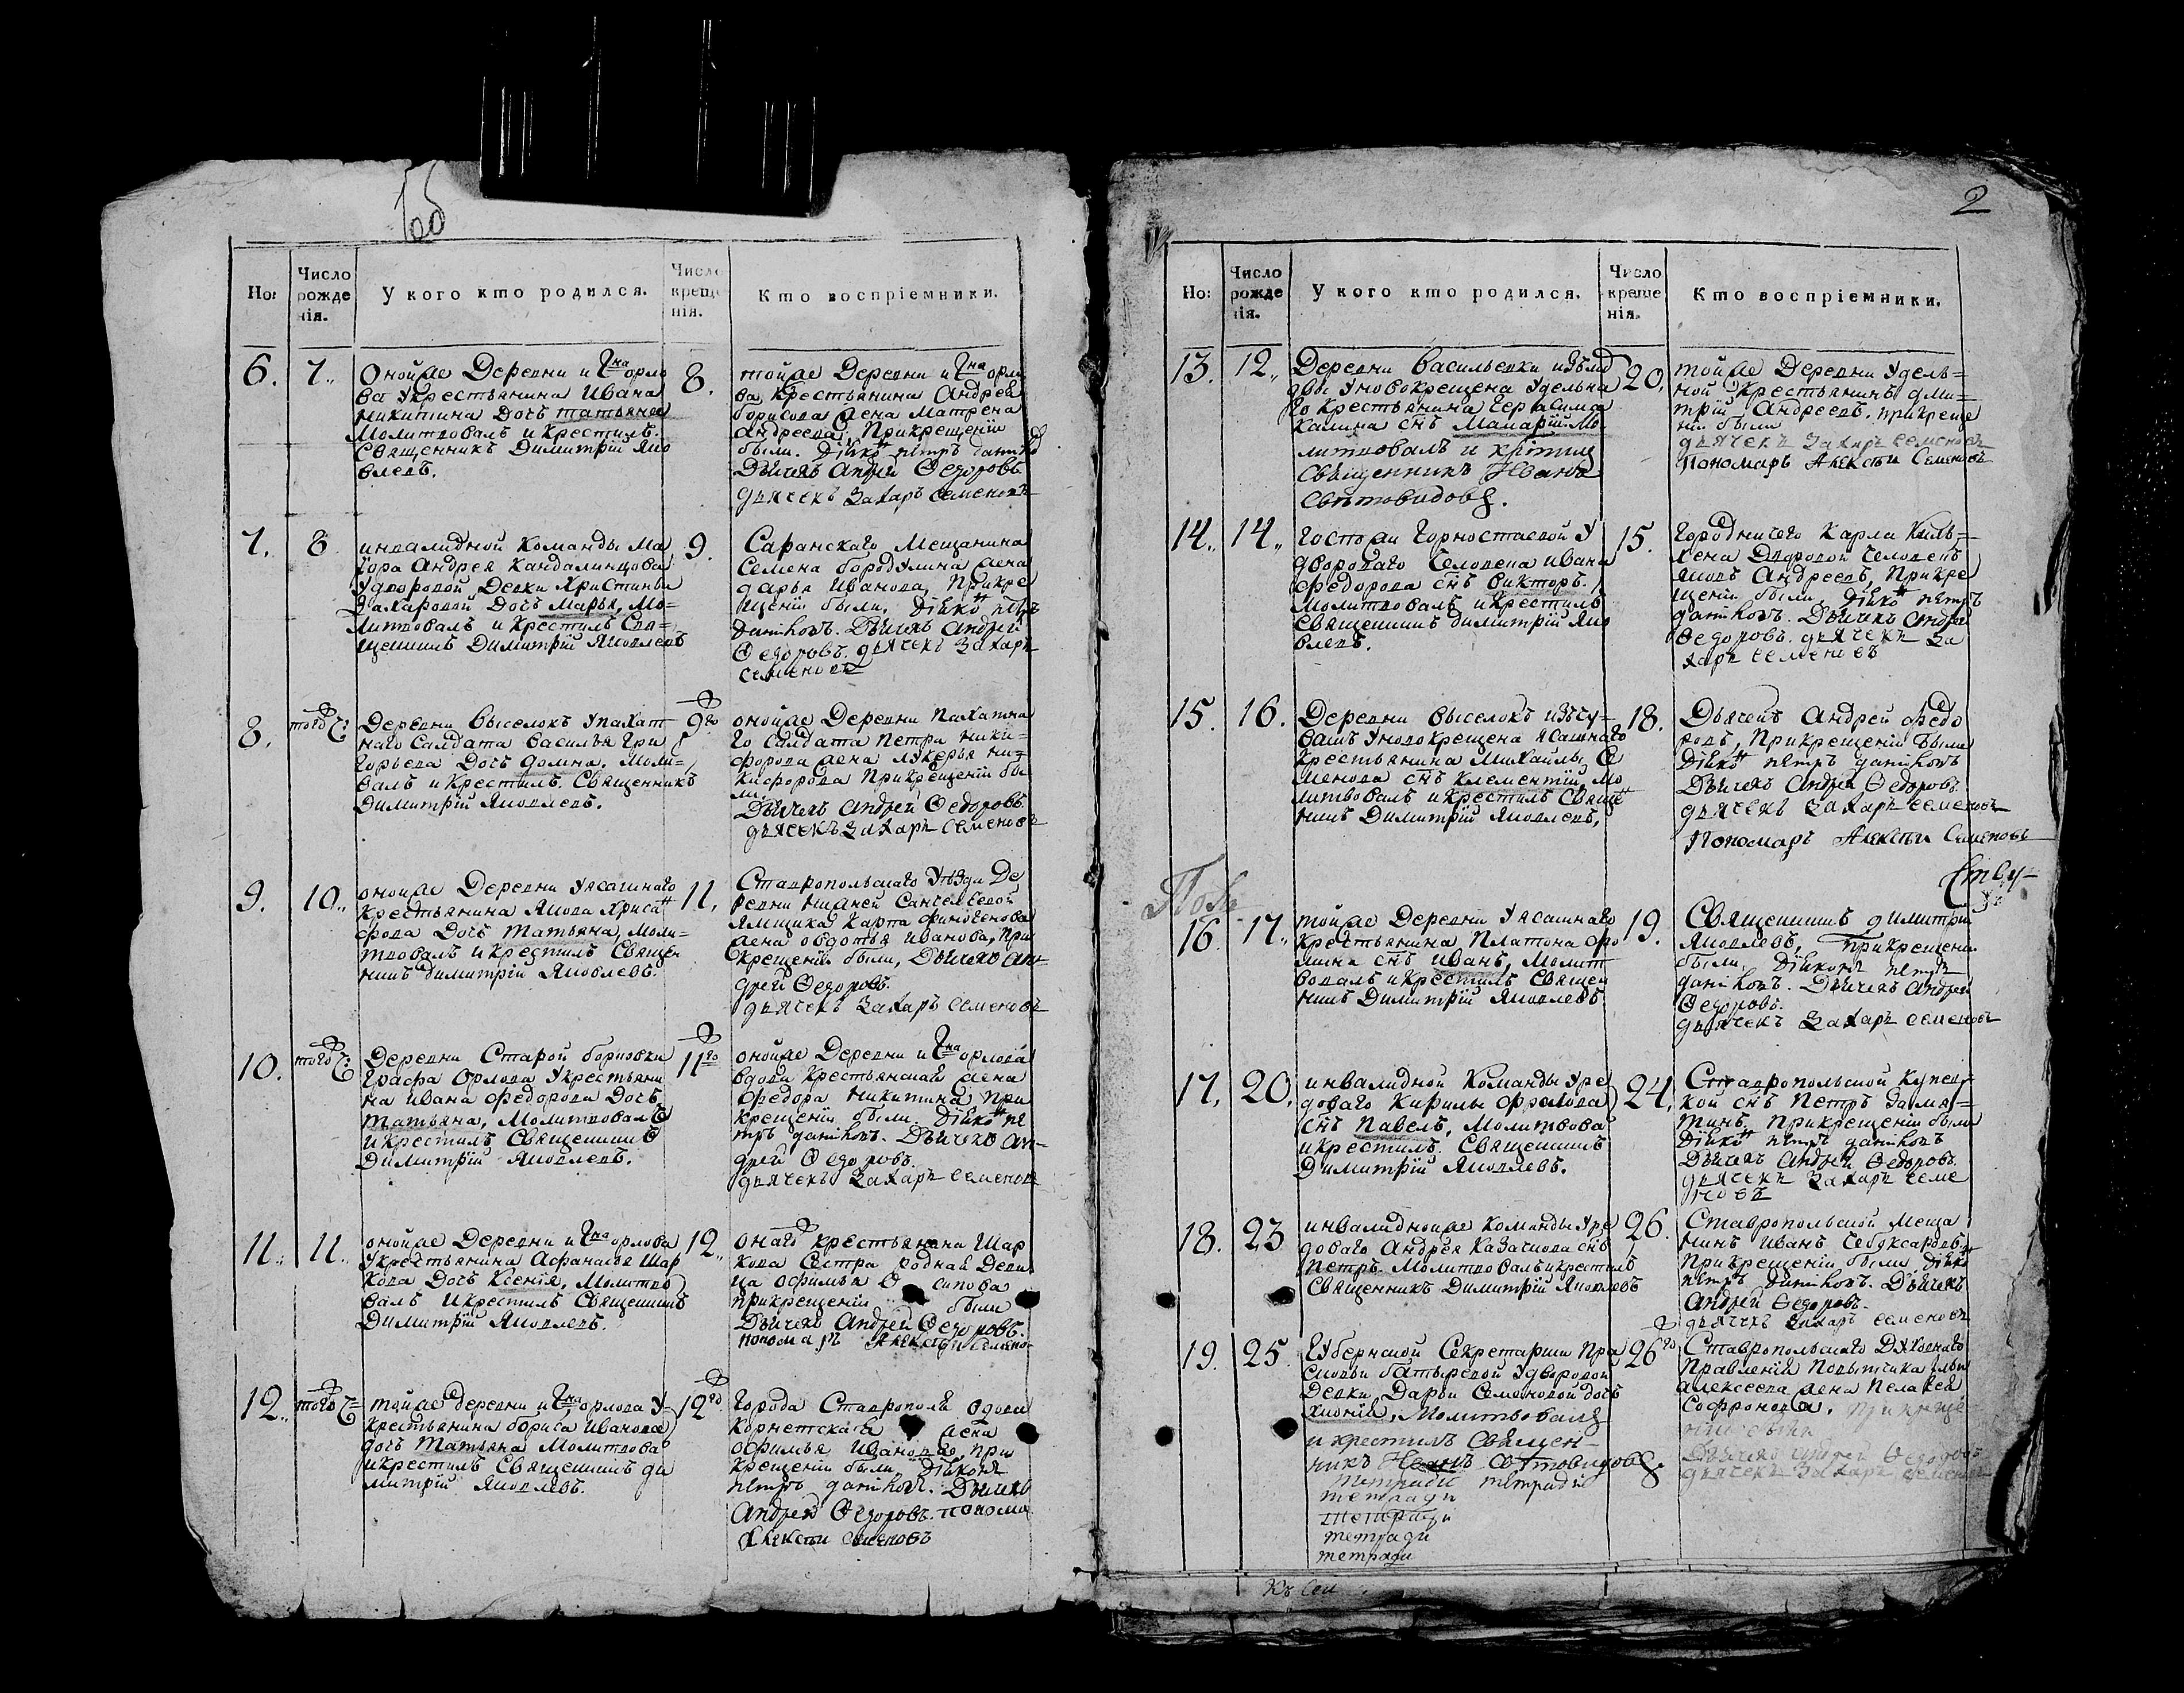 Но:
Число рожде нія.
У кого кто родился.
Число креще нія.
Кто воспріемники.
6.
7.
Оной же Деревни и Гна орло
ва Укрестьянина Ивана
Никитина Дочь татьяна
Молитвовалъ икрестилъ.
Священникъ Димитрій Яко
влевъ.
8.
тойже Деревни и Гна орло
ва крестьянина Андрея
борисова жена Матрена
андреева, Прикрещеніи
были. Діяко петръ
Дьячекъ Андрей Ѳедоровъ
дьячекъ Захаръ семеновъ
7.
8.
инвалидной команды Ма
іора Андрея Кандалинцова
Удворовой Девки Христиньи
Захаровой Дочь Марья, Мо=
литвовалъ и крестилъ Свя=
щенникъ Димитрій Яковлевъ
9.
Саранскаго Мещанина
Семена бородулина жена
дарья Иванова, Прикре
щеніи были. Діяко петръ
Дьячекъ Андрей
Ѳедоровъ. дьячекъ Захаръ
семеновъ
8.
того ч:
Деревни Выселокъ Упахат
наго Салдата Василья Гри
горьева Дочь домна, Моли=
валъ икрестилъ. Священникъ
Димитрій Яковлевъ.
9го
онойже Деревни Пахатна
го Салдата Петра Ники=
форова жена лукерья Ни=
кифорова Прикрещеніи бы
ли.
Дьячекъ Андрей Ѳедоровъ
дьячекъ Захаръ Семеновъ
9.
10.
онойже Деревни Уясашнаго
крестьянина Якова Хриса
фова Дочь Татьяна, Моли=
твовалъ икрестилъ Священ
никъ Димитрій Яковлевъ.
11.
Ставропольскаго Уѣзда Де
ревни Нижней Санчелеевой
Ямщика Карпа финогенова
жена овдотья Иванова, При
крещеніи были, Дьячекъ Ан=
дрей Ѳедоровъ.
дьячекъ Захаръ Семеновъ
10.
того ч:
Деревни Старой борковки
Графа Орлова Укрестьяни
на Ивана Федорова Дочь
татьяна, Молитвовалъ
икрестилъ Священникъ
Димитрій Яковлевъ.
11го
онойже Деревни и Гна орлова
вдова крестьянская жена
Федора Никитина При
крещеніи были Діяко пе
тръ Дьячекъ Ан=
дрей Ѳедоровъ.
дьячекъ Захаръ Семеновъ
11.
11.
онойже Деревни и Гна орлова
Укрестьянина Афанасья Шар
кова Дочь Ксенія, Молитво
валъ икрестилъ Священникъ
Димитрій Яковлевъ.
12.
онаго крестьянина Шар
кова Сестра родная Деви
ца офимья сипова
прикрещеніи были
Дьячекъ Андрей Ѳедоровъ.
пономарь Алексѣй Семено
12.
того ч:
тойже деревни и Гна орлова у
крестьянина бориса Иванова
дочь Татьяна Молитвова
икрестилъ Священникъ ди
митрій Яковлевъ.
12го
Города Ставрополя вдова
Корнетская жена
офимья Иванова, при
крещеніи были Діяконъ
петръ Дьячекъ
Андрей Ѳедоровъ. понома
Алексѣй семеновъ
2
Но:
Число рожде нія.
У кого кто родился.
Число креще нія.
Кто воспріемники.
13.
12.
Деревни Васильевки изъмор
двы Уновокрещена Удельна
го крестьянина Герасима
Калина снъ Макарій. Мо
литвовалъ и крестилъ
Священникъ Иванъ
Свѣтовидовъ.
20.
тойже Деревни Удель=
ной крестьянинъ дми=
трій Андреевъ. прикреще
ніи были
дьячекъ Захаръ Семеновъ
Пономарь Алексѣй Семеновъ
14.
14.
Госпожи Горностаевой У
двороваго Человека Ивана
Федорова снъ викторъ.
Молитвовалъ икрестилъ
Священникъ Димитрій Яко
влевъ.
15.
Городничего Карла
Дворовой Человекъ
Яковъ Андреевъ, Прикре
щеніи были, Діяко петръ
Дьячекъ Андрей
Ѳедоровъ. дьячекъ За
харъ семеновъ
15.
16.
Деревни Выселокъ изъчу=
вашъ Уновокрещена Ясашнаго
крестьянина Михайлы Се
менова снъ Клементій, Мо
литвовалъ икрестилъ Свяще
никъ Димитрій Яковлевъ,
18.
Дьячекъ Андрей Федо
ровъ, Прикрещеніи были
Діяко петръ
Дьячекъ Андрей Ѳедоровъ
дьячекъ Захаръ Семеновъ
Пономарь Алексѣй Семеновъ
16.
17.
тойже Деревни Уясашнаго
крестьянина Платона Фро
лина снъ Иванъ, Молит
вовалъ икрестилъ Священ
никъ Димитрій Яковлевъ
19.
Священникъ Димитрій
Яковлевъ, Прикрещени
были. Діяконъ петръ
Дьячекъ Андрей
Ѳедоровъ.
дьячекъ Захаръ семеновъ
17.
20.
инвалидной Команды Уря
доваго Кирилы Фролова
снъ Павелъ, Молитвова
икрестилъ Священникъ
Димитрій Яковлевъ.
24.
Ставропольской Купец=
кой снъ Петръ Замя=
тинъ. Прикрещеніи были
Діяко петръ
Дьячекъ Андрей Ѳедоровъ.
дьячекъ Захаръ Семе
новъ
18.
23
инвалиднойже Команды Уря
доваго Андрея Казачкова снъ
Петръ. Молитвовалъ икрестилъ
Священникъ Димитрій Яковлевъ
26.
Ставропольской Меща
нинъ Иванъ Чебуксаровъ
Прикрещеніи были Діяко
петръ Дьячекъ
Андрей Ѳедоровъ.
дьячекъ Захаръ Семеновъ
19.
25.
Губернской Секретарши Пра
сковьи батыревой Удворовой
Девки Дарьи Семеновой дочь
Хионія, Молитвовалъ
и крестилъ Священ=
никъ Иванъ Свѣтовидовъ.
тетради тетрадіи
тетради
тетради
тетради
тетради
26го
Ставропольскаго Духовнаго
Правленія Повытчика Ильи
алексеева жена Пелагея
Софронова. прикреще
ніи были
Дьячекъ Андрей Ѳедоровъ
дьячекъ Захаръ Семеновъ